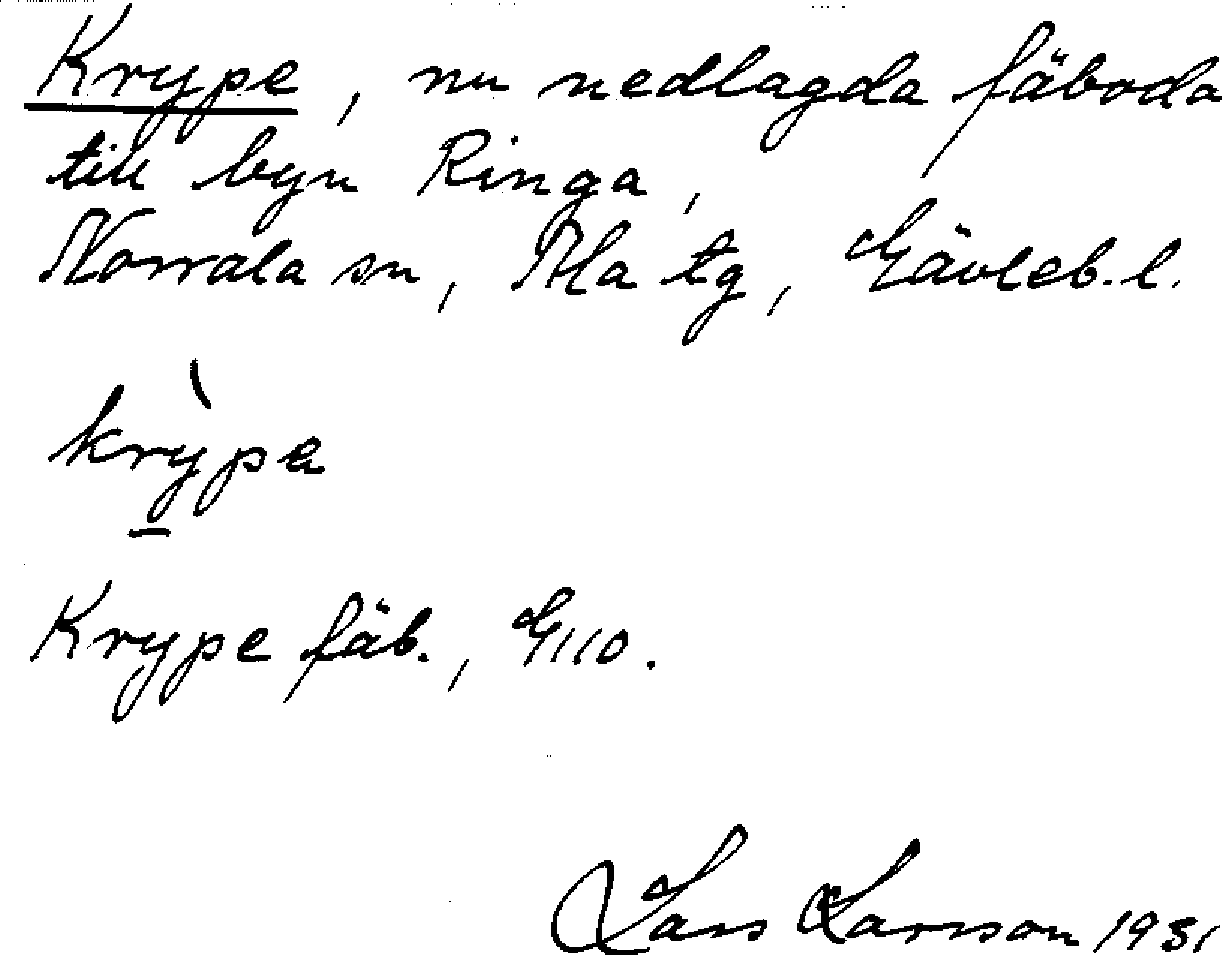 Krype, nu nedlagda fäboda
till byn Ringa,
Norrala sn, Ala tg, Gävleb.l.
krỳpe
Krype fäb., G110.
Lars Larsson 1931